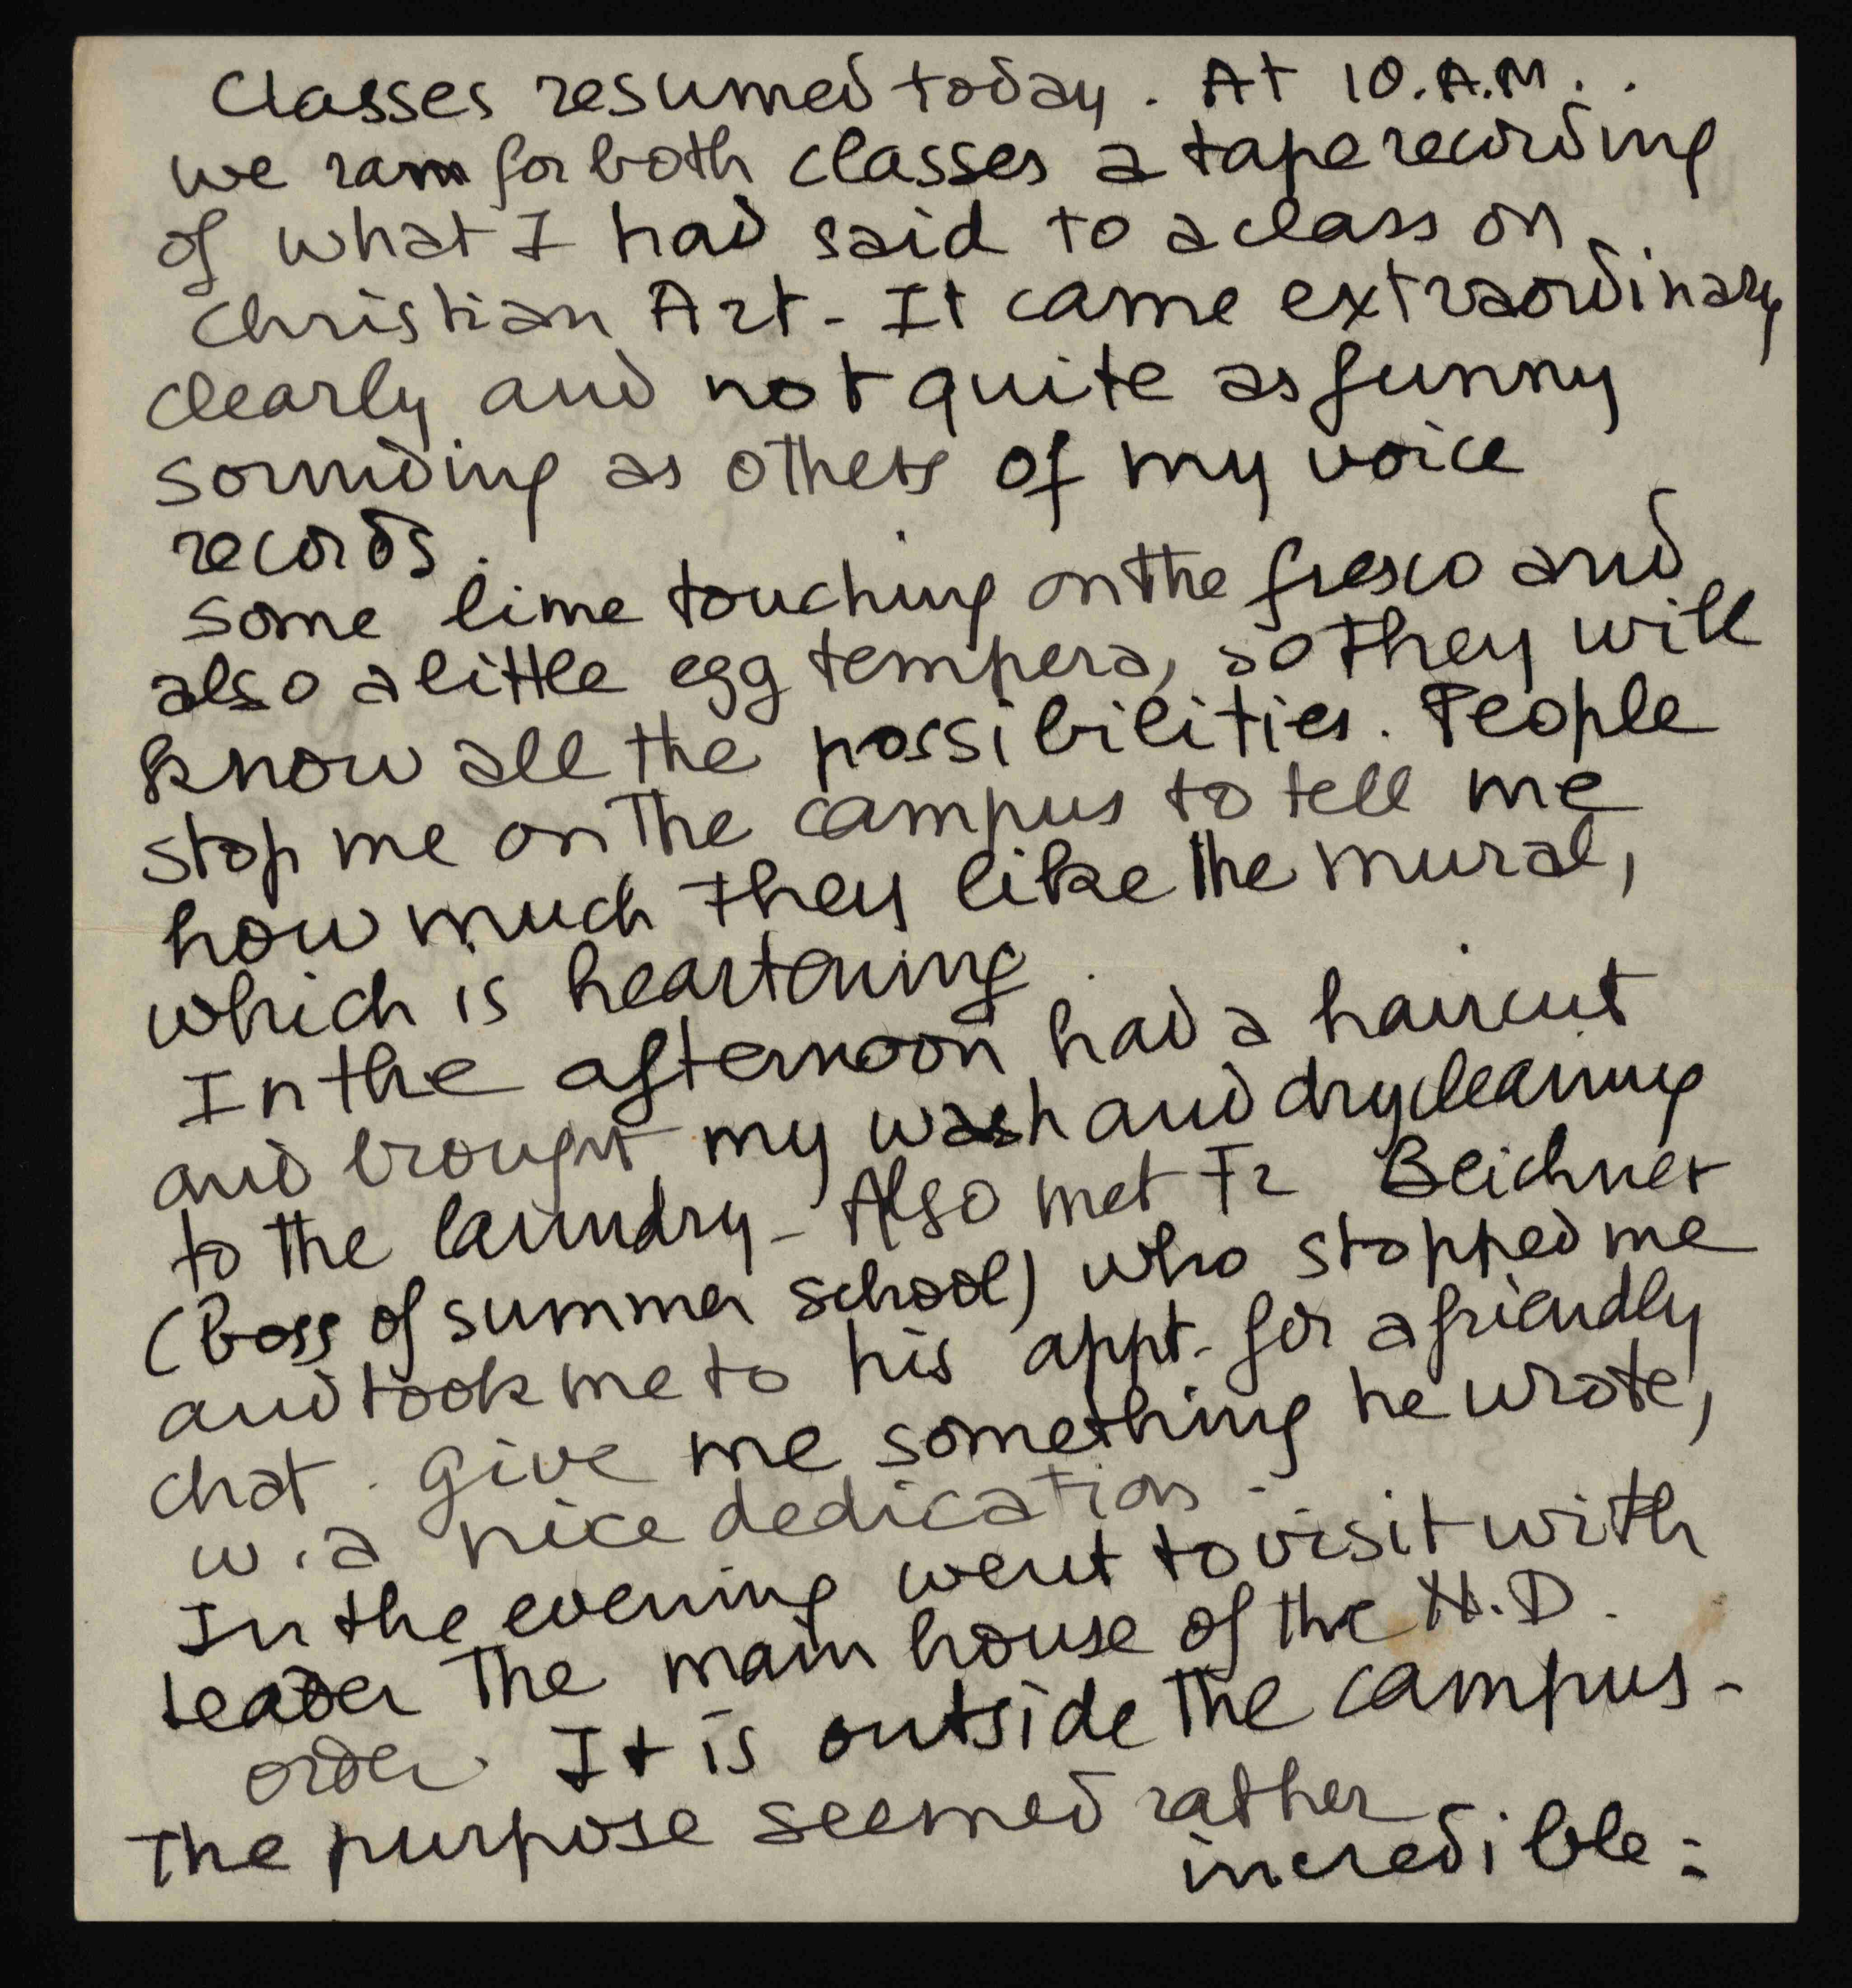 Classes resumed today. At 10.A.M..
we ran for both classes a tape recording
of what I had said to a class on
Christian Art - It came extraordinary
clearly and not quite as funny
sounding as others of my voice
records.
some lime touching on the fresco and
also a little egg tempera, so they will
know all the possibilities. People
stop me on the campus to tell me
how much they like the mural,
which is heartening.
In the afternoon had a haircut
and brought my wash and drycleaning
to the laundry - Also met Fr Beichner
(boss of summer school) who stopped me
and took me to his appt. for a friendly
chat. give me something he wrote,
w. a nice dedication -
In the evening went to visit with
Leader the main house of the N.D.
order. It is outside the campus -
The purpose seemed rather
incredible: